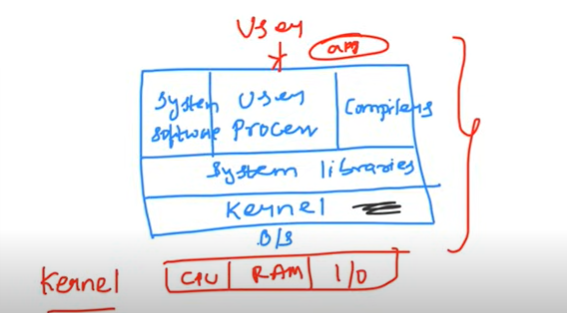 User
System
software
User
Process
Compilers
System libraries
Kernel
O/S
Kernel
CPU RAM I/O